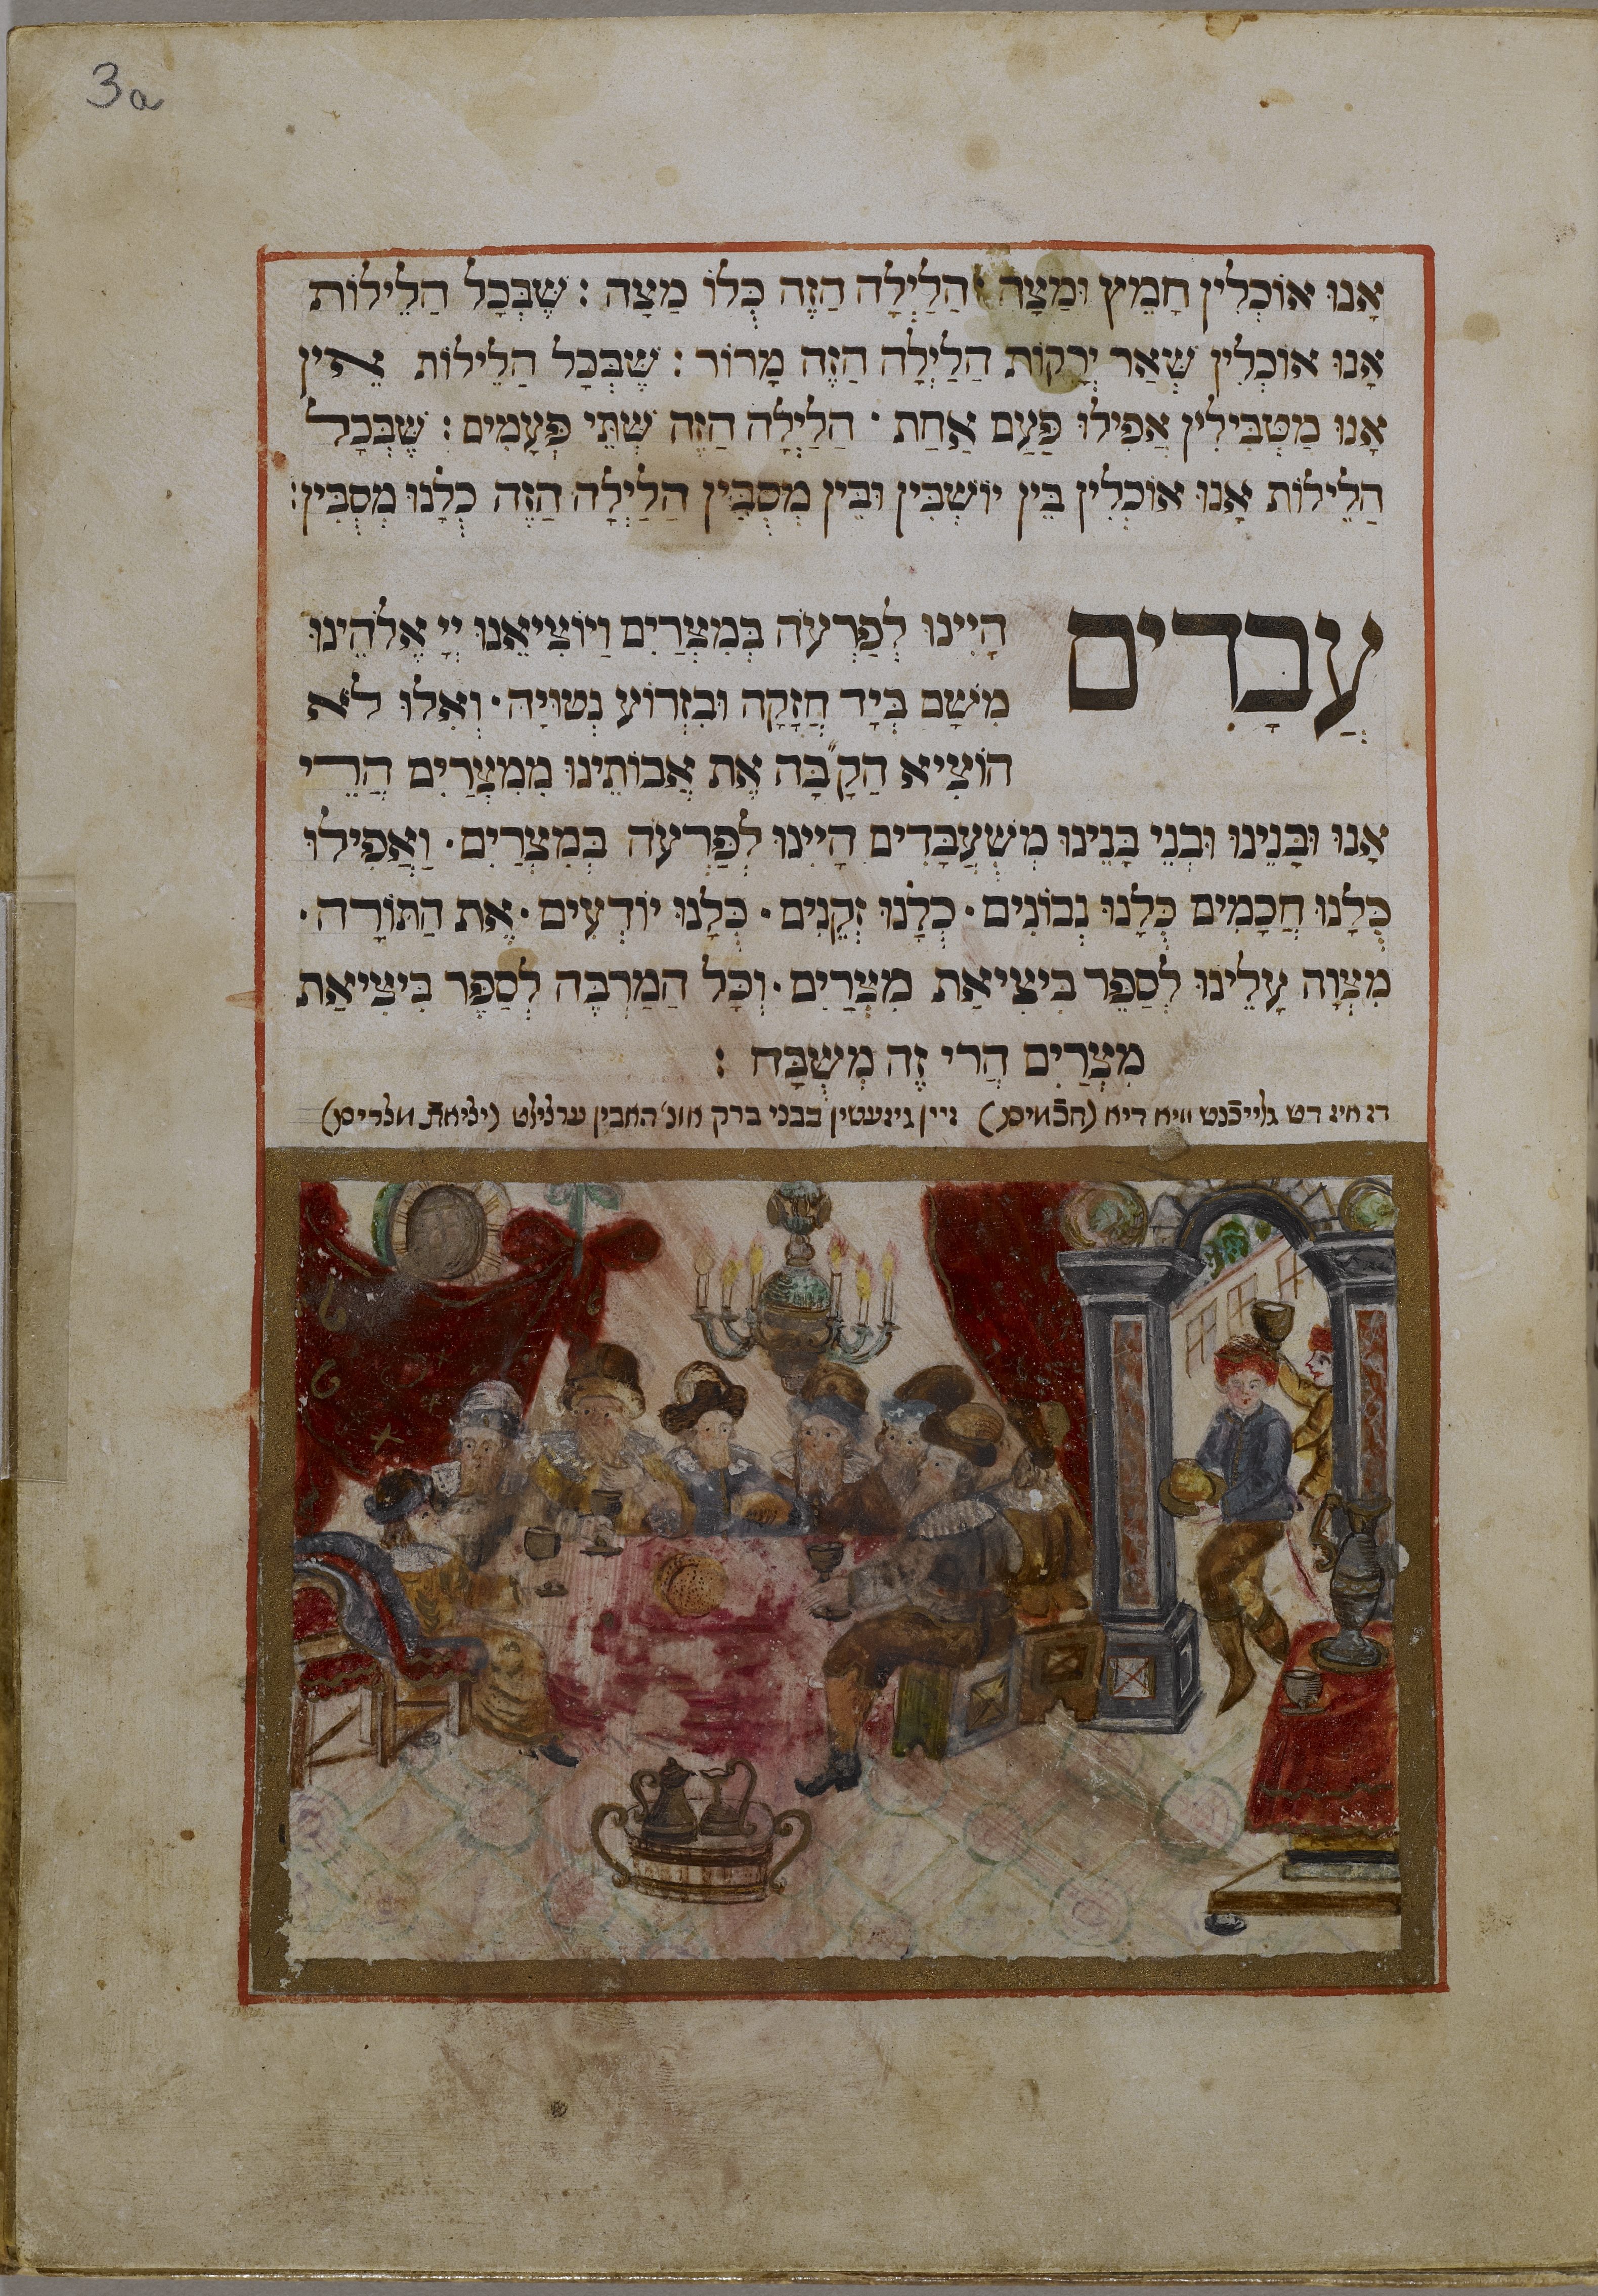 3a
אָנוּ אוֹכְלִין חָמֵץ וּמַצָה הַלַיְלָה הַזֶה כְּלוֹ מַצָה : שֶׁבְּכָל הַלֵילוֹת
אָנוּ אוֹכְלִין שְׁאַר יְרָקוֹת הַלַיְלָה הַזֶה מָרוֹר : שֶׁבְּכָל הַלֵילוֹת אֵין
אָנוּ מַטְבִּילִין אֲפִילוּ פַּעַם אַחַת · הַלַיְלָה הַזֶה שְׁתֵּי פְּעָמִים : שֶׁבְּכָל
הַלֵילוֹת אָנוּ אוֹכְלִין בֵּין יוֹשְׁבִּין וּבֵין מְסְבִּין הַלַיְלָה הַזֶה כְלָנוּ מְסְבִּין :
עֲבָדִים
הָיִינוּ לְפַרְעֹה בְּמִצְרַיִם וַיוֹצִיאֵנוּ יְיָ אֱלֹהֵינוּ
מִשָׁם בְּיָד חֲזָקָה וּבִזְרוֹעַ נְטוּיָה · וְאִלוּ לֹא
הוֹצִיא הַקָ״בָּה אֶת אֲבוֹתֵינוּ מִמִצְרַיִם הֲרֵי
אָנוּ וּבָּנֵינוּ וּבְנֵי בָּנֵינוּ מְשְׁעֲבָּדִים הָיִינוּ לְפַּרְעֹה בְּמִצְרַיִם · וַאֲפִילוּ
כְּלָנוּ חֲכָמִים כְּלָנוּ נְבוֹנִים · כְלָנוּ זְקֵנִים · כְּלָנוּ יוֹדְעִים · אֶת הַתּוֹרָה ·
מִצְוָה עָלֵינוּ לְסַפֵּר בִּיצִיאַת מִצְרַיִם · וְכָּל הַמַרְבֶּה לְסַפֵּר בִּיצִיאַת
מִצְרַיִם הֲרֵי זֶה מְשְׁבָּח :
דנ אינ דש גלייכֿנט וויא דיא (חכֿמים) זיין גיזעסין בבני ברק אונ׳ האבין ערצילט (יציאת מצרים)